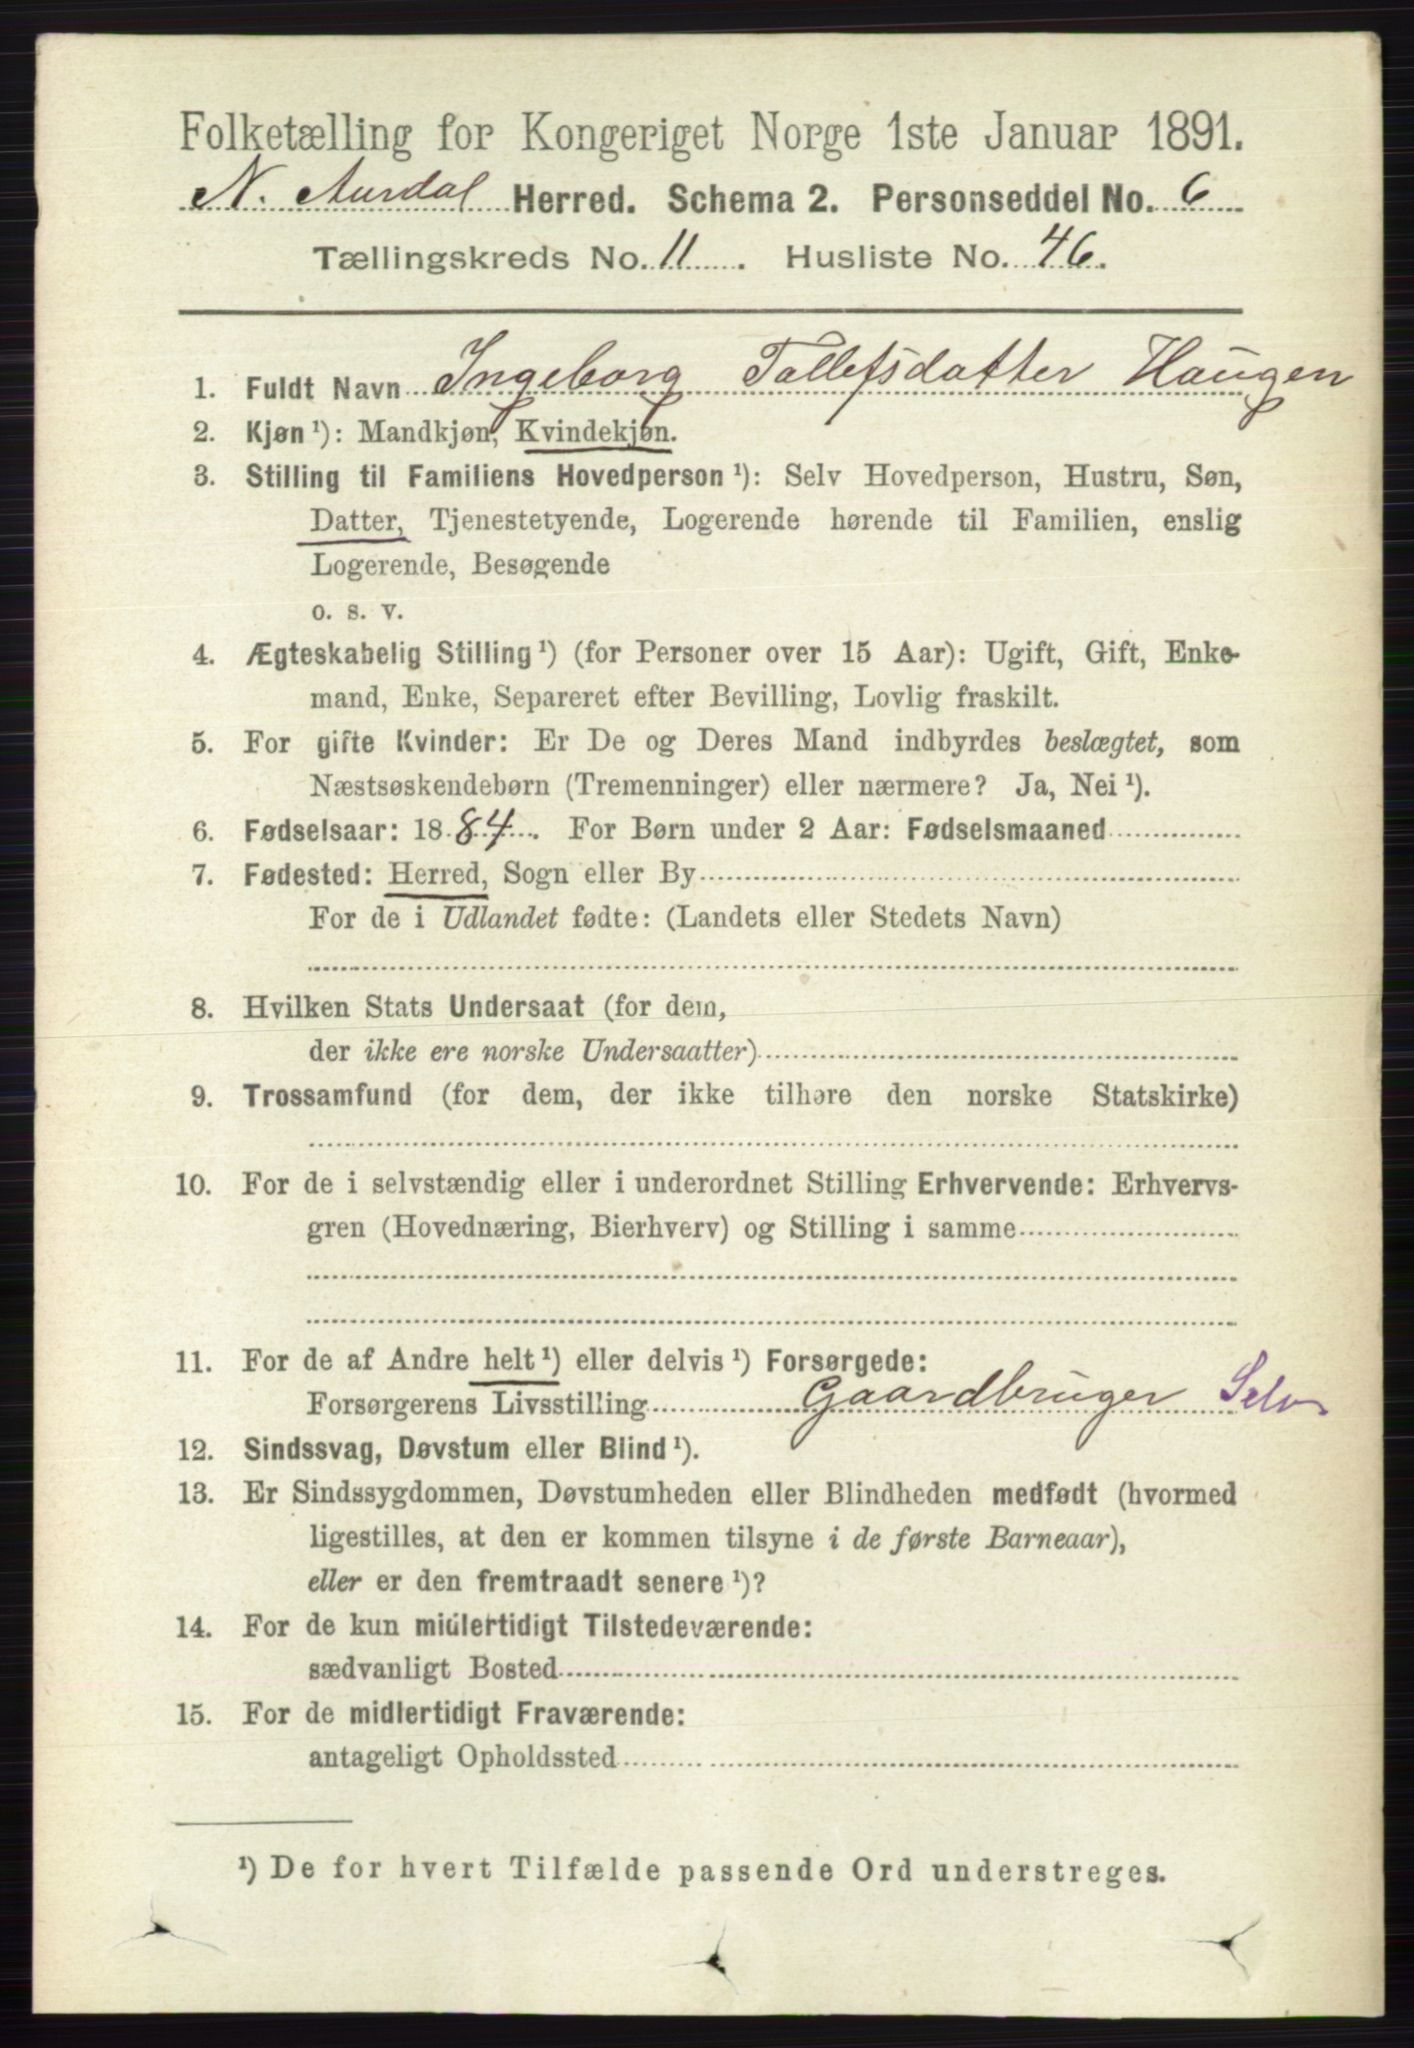 Folketælling for Kongeriget Norge 1ste Januar 1891.
N. Aurdal Herred. Schema 2. Personseddel No. 6
Tællingskreds No. 11. Husliste No. 46.
1. Fuldt Navn Ingeborg Tollefsdatter Haugen
2. Kjøn ¹): Mandkjøn, Kvindekjøn.
3. Stilling til Familiens Hovedperson ¹): Selv Hovedperson, Hustru, Søn,
Datter, Tjenestetyende, Logerende hørende til Familien, enslig
Logerende, Besøgende
o. s. v.
4. Ægteskabelig Stilling ¹) (for Personer over 15 Aar): Ugift, Gift, Enke-
mand, Enke, Separeret efter Bevilling, Lovlig fraskilt.
5. For gifte Kvinder: Er De og Deres Mand indbyrdes beslægtet, som
Næstsøskendebørn (Tremenninger) eller nærmere? Ja, Nei ¹).
6. Fødselsaar: 1884. For Børn under 2 Aar: Fødselsmaaned
7. Fødested: Herred, Sogn eller By
For de i Udlandet fødte: (Landets eller Stedets Navn)
8. Hvilken Stats Undersaat (for dem,
der ikke ere norske Undersaatter)
9. Trossamfund (for dem, der ikke tilhøre den norske Statskirke)
10. For de i selvstændig eller i underordnet Stilling Erhvervende: Erhvervs-
gren (Hovednæring, Bierhverv) og Stilling i samme
11. For de af Andre helt ¹) eller delvis ¹) Forsørgede:
Forsørgerens Livsstilling Gaardbruger Selv
12. Sindssvag, Døvstum eller Blind ¹).
13. Er Sindssygdommen, Døvstumheden eller Blindheden medfødt (hvormed
ligestilles, at den er kommen tilsyne i de første Barneaar),
eller er den fremtraadt senere ¹)?
14. For de kun midlertidigt Tilstedeværende:
sædvanligt Bosted
15. For de midlertidigt Fraværende:
antageligt Opholdssted
¹) De for hvert Tilfælde passende Ord understreges.